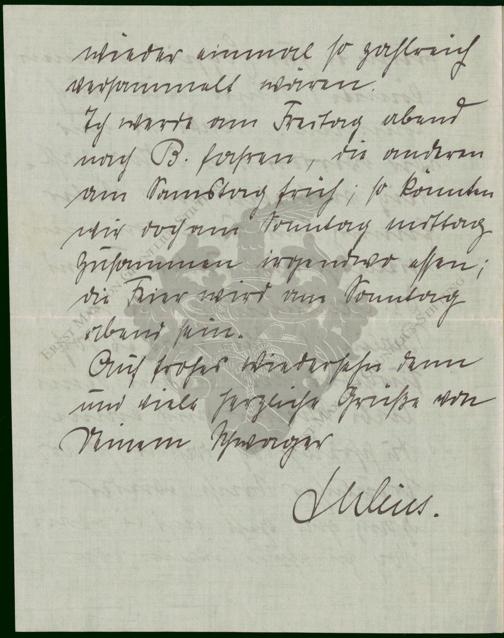 wieder einmal so zahlreich
versammelt wären.
Ich werde am Freitag abend
nach B. fahren, die anderen
am Samstag früh; so könnten
wir doch am Sonntag mittag
zusammen irgendwo essen;
die Feier wird am Sonntag
abend sein.
Auf frohes Wiedersehn denn
und viele herzliche Grüße von
Deinem Schwager
Julius.